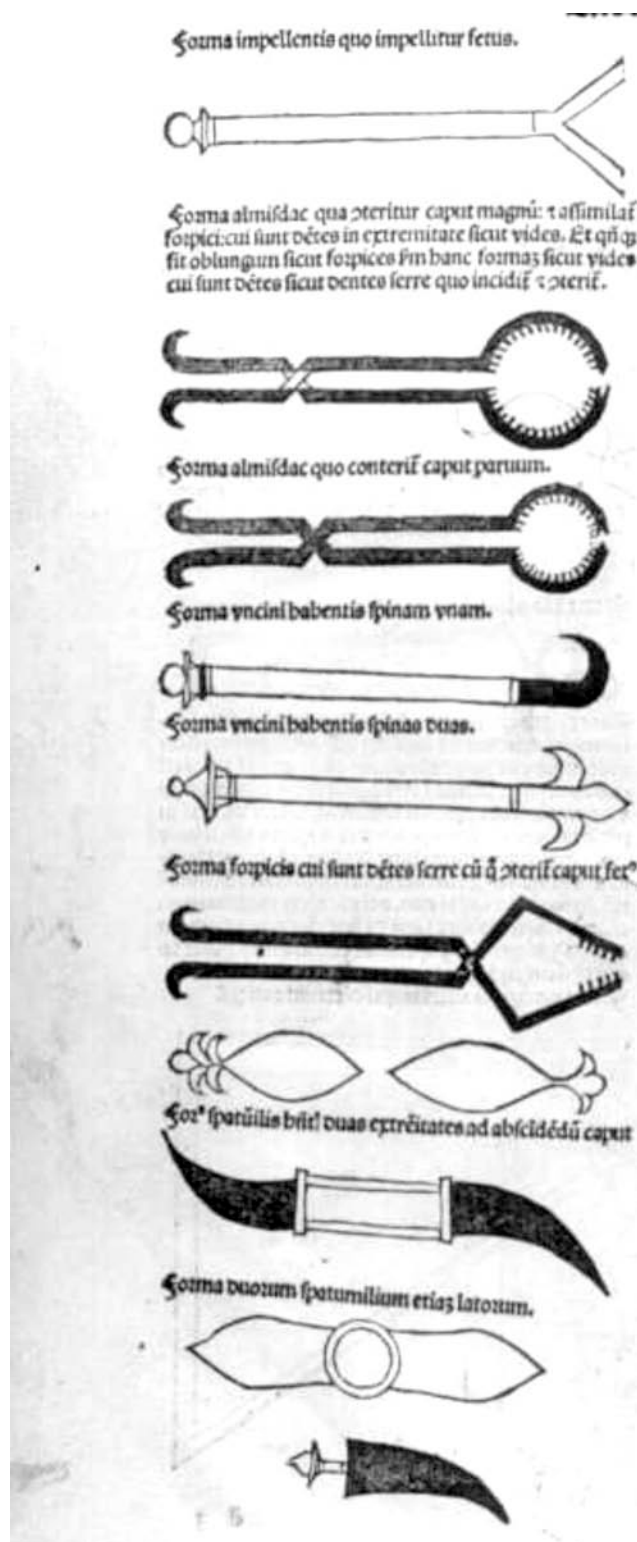 Forma impellentis quo impellitur fetus.
Forma almiſdac qua ꝯteritur caput magnū: ⁊ aſſimilat᷑
foꝛpici: cui ſunt dētes in extremitate ſicut vides. Et qn̄qꝫ
fit oblungum ſicut foꝛpices ẜm hanc foꝛmaꝫ ſicut vides
cui ſunt dētes ſicut dentes ſerre quo incidit᷑ ⁊ ꝯterit᷑.
Foꝛma almiſdac quo conterit᷑ caput paruum.
Foꝛma vncini habentis ſpinam vnam.
Foꝛma vncini habentis ſpinas duas.
Foꝛma foꝛpicis cui ſunt dētes ſerre cū q̄ ꝯterit᷑ caput fetꝰ
ſpatūilis duas extrēitates ad abſcidēdū caput
Foꝛma duoꝛum ſpatumilium etiaꝫ latoꝛum.